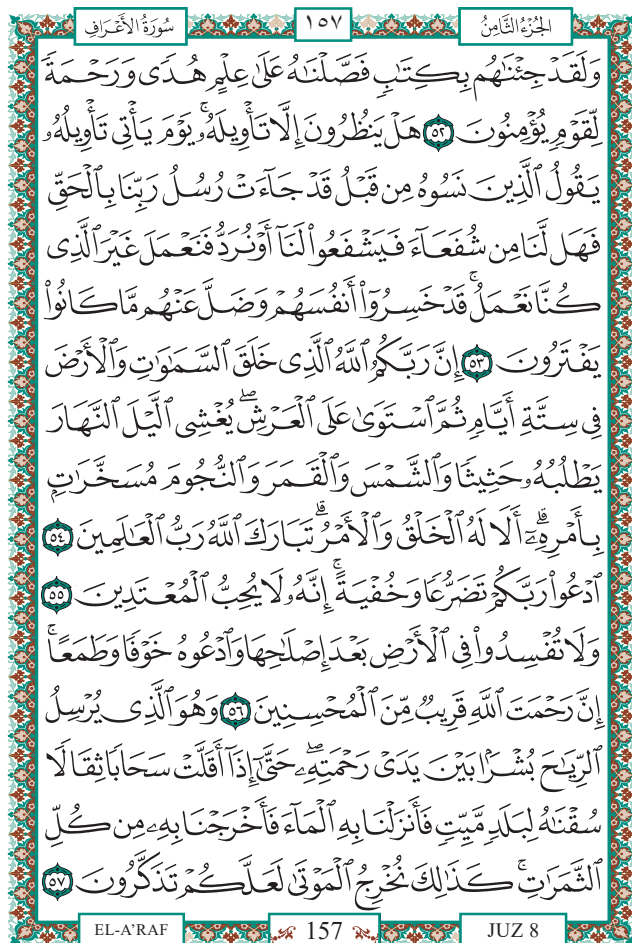 الجُزْءُ الثَّامِنُ
١٥٧
سُورَةُ الأَعْرَافِ
وَلَقَدْ جِئْنَٰهُم بِكِتَٰبٍ فَصَّلْنَٰهُ عَلَىٰ عِلْمٍ هُدًى وَرَحْمَةً
لِّقَوْمٍ يُؤْمِنُونَ ٥٢ هَلْ يَنظُرُونَ إِلَّا تَأْوِيلَهُۥۚ يَوْمَ يَأْتِى تَأْوِيلُهُۥ
يَقُولُ ٱلَّذِينَ نَسُوهُ مِن قَبْلُ قَدْ جَآءَتْ رُسُلُ رَبِّنَا بِٱلْحَقِّ
فَهَل لَّنَا مِن شُفَعَآءَ فَيَشْفَعُوا۟ لَنَآ أَوْ نُرَدُّ فَنَعْمَلَ غَيْرَ ٱلَّذِى
كُنَّا نَعْمَلُۚ قَدْ خَسِرُوٓا۟ أَنفُسَهُمْ وَضَلَّ عَنْهُم مَّا كَانُوا۟
يَفْتَرُونَ ٥٣ إِنَّ رَبَّكُمُ ٱللَّهُ ٱلَّذِى خَلَقَ ٱلسَّمَٰوَٰتِ وَٱلْأَرْضَ
فِى سِتَّةِ أَيَّامٍ ثُمَّ ٱسْتَوَىٰ عَلَى ٱلْعَرْشِۖ يُغْشِى ٱلَّيْلَ ٱلنَّهَارَ
يَطْلُبُهُۥ حَثِيثًا وَٱلشَّمْسَ وَٱلْقَمَرَ وَٱلنُّجُومَ مُسَخَّرَٰتٍۭ
بِأَمْرِهِۦٓۗ أَلَا لَهُ ٱلْخَلْقُ وَٱلْأَمْرُۗ تَبَارَكَ ٱللَّهُ رَبُّ ٱلْعَٰلَمِينَ ٥٤
ٱدْعُوا۟ رَبَّكُمْ تَضَرُّعًا وَخُفْيَةًۚ إِنَّهُۥ لَا يُحِبُّ ٱلْمُعْتَدِينَ ٥٥
وَلَا تُفْسِدُوا۟ فِى ٱلْأَرْضِ بَعْدَ إِصْلَٰحِهَا وَٱدْعُوهُ خَوْفًا وَطَمَعًاۚ
إِنَّ رَحْمَتَ ٱللَّهِ قَرِيبٌ مِّنَ ٱلْمُحْسِنِينَ ٥٦ وَهُوَ ٱلَّذِى يُرْسِلُ
ٱلرِّيَٰحَ بُشْرًۢا بَيْنَ يَدَىْ رَحْمَتِهِۦۖ حَتَّىٰٓ إِذَآ أَقَلَّتْ سَحَابًا ثِقَالًا
سُقْنَٰهُ لِبَلَدٍ مَّيِّتٍ فَأَنزَلْنَا بِهِ ٱلْمَآءَ فَأَخْرَجْنَا بِهِۦ مِن كُلِّ
ٱلثَّمَرَٰتِۚ كَذَٰلِكَ نُخْرِجُ ٱلْمَوْتَىٰ لَعَلَّكُمْ تَذَكَّرُونَ ٥٧
EL-A'RAF
157
JUZ 8